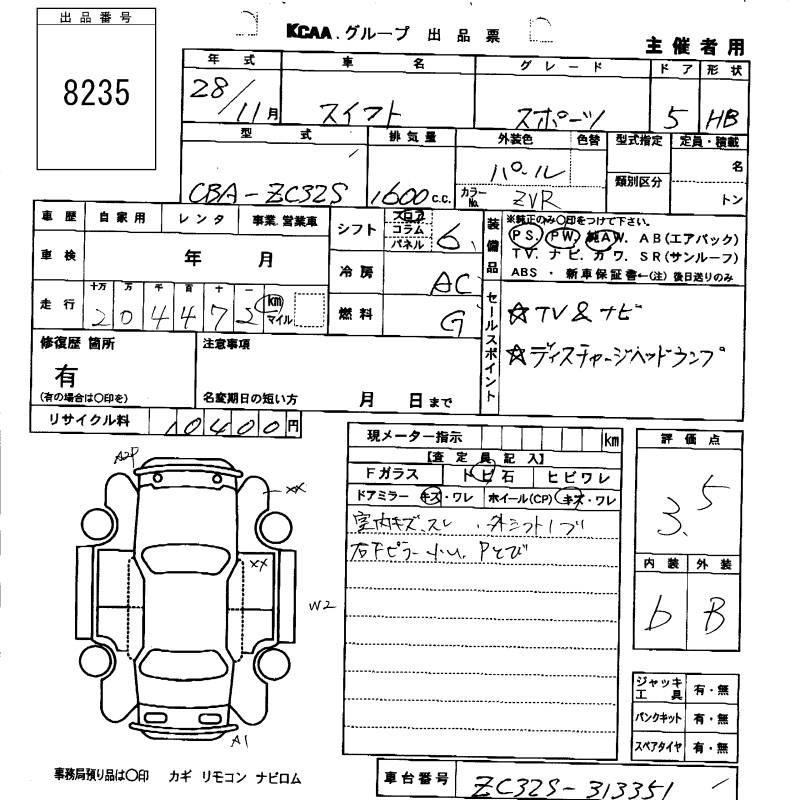 出品番号
8235
KCAA.グループ 出品票
主催者用
年式 車名 グレード ドア 形状
28/11月 スイフト スポーツ 5 HB
型式 排気量 外装色 色替 型式指定 定員・積載
CBA-ZC32S 1600c.c. パール 類別区分 名
カラーNo. ZVR トン
車歴 自家用 レンタ 事業.営業車
シフト フロア コラム パネル 6
車検 年 月
冷房 AC
走行 十万 万 千 百 十 一
204472 km マイル
燃料 G
装備品
※純正のみ〇印をつけて下さい。
PS. PW. 純AW. AB(エアバック)
TV. ナビ. カワ. SR(サンルーフ)
ABS ・ 新車保証書←(注) 後日送りのみ
セールスポイント
☆TV & ナビ
☆ディスチャージヘッドランプ
修復歴 箇所
有
(有の場合は〇印を)
注意事項
名変期日の短い方 月 日まで
リサイクル料 10400円
現メーター指示 km
【査定員記入】
Fガラス トビ石 ヒビワレ
ドアミラー キズ・ワレ ホイール(CP) キズ・ワレ
室内キズ、スレ 、外シフトノブ
右Fピラー小U、Pとび
評価点
3.5
内装 外装
b B
A2P
XX
XX
W2
A1
ジャッキ工具 有・無
パンクキット 有・無
スペアタイヤ 有・無
事務局預り品は〇印 カギ リモコン ナビロム
車台番号 ZC32S-313351